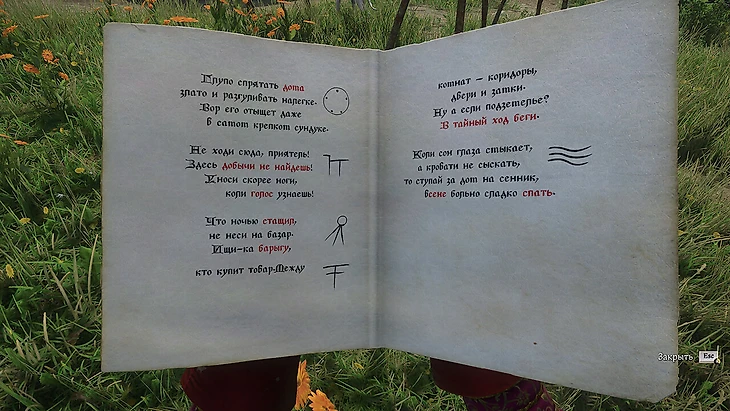 Глупо спрятать дома
злато и разгуливать налегке.
Вор его отыщет даже
в самом крепком сундуке.
Не ходи сюда, приятель!
Здесь добычи не найдешь!
Уноси скорее ноги,
коли голос узнаешь!
Что ночью стащил,
не неси на базар.
Ищи-ка барыгу,
кто купит товар.Между
комнат – коридоры,
двери и замки.
Ну а если подземелье?
В тайный ход беги.
Коли сон глаза смыкает,
а кровати не сыскать,
то ступай за дом на сенник,
в сене больно сладко спать.
Закрыть Esc